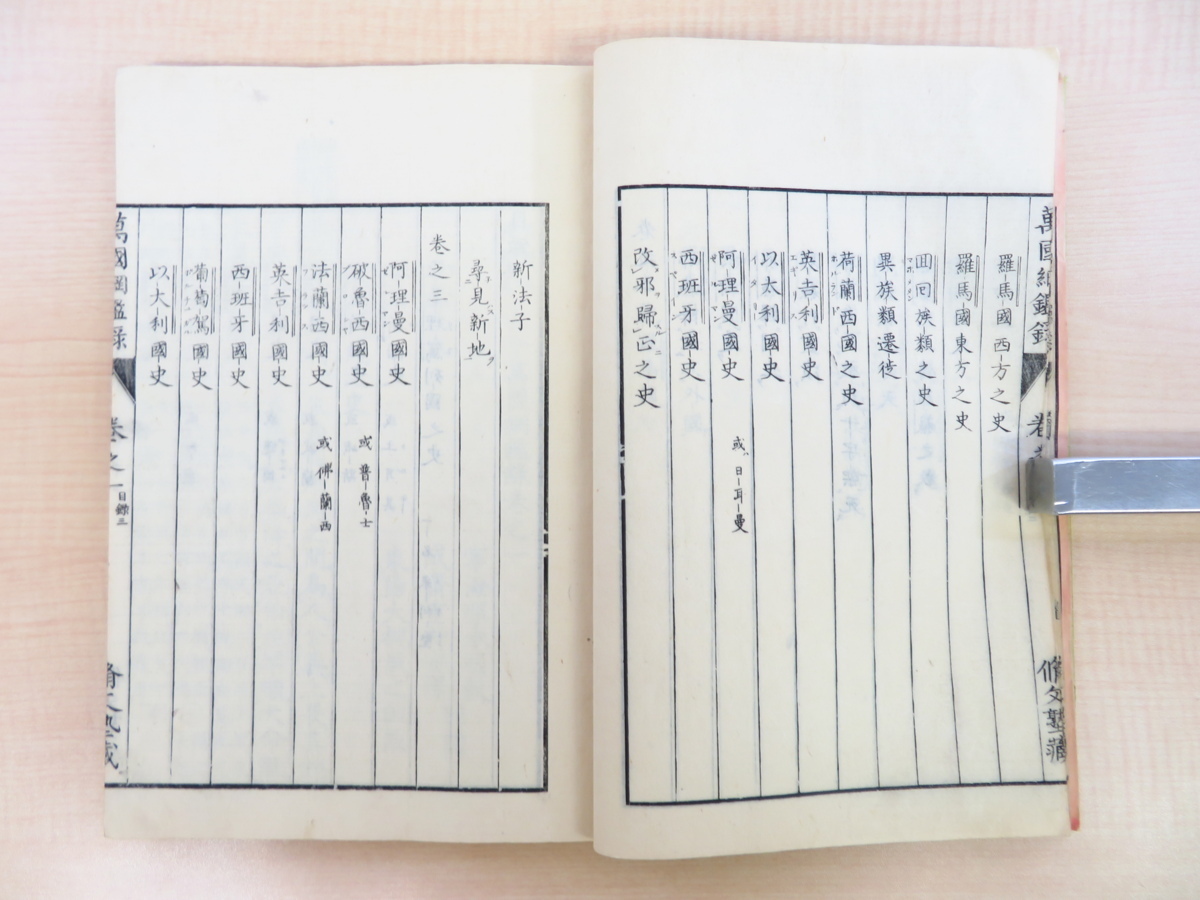 羅馬國西方之史
羅馬國東方之史
回回族類之史
異族類遷徙
荷蘭西國之史
英吉利國史
以太利國史
阿理曼國史 或日耳曼
西班牙國史
改邪歸正之史
新法子
尋見新地
卷之三
阿理曼國史
破魯西國史 或普魯士
法蘭西國史 或佛蘭西
英吉利國史
西班牙國史
葡萄駕國史
以大利國史
萬國綱鑑錄 卷之一 目錄三